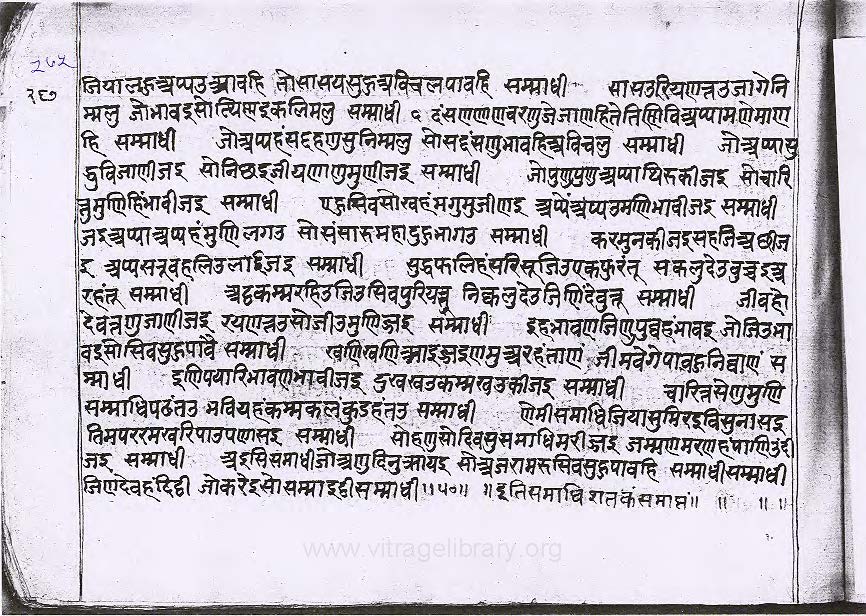 २७५
२६७
जियालङच्चप्पउच्चावहि तोसासयसुहुअविचलपावहि सम्माधी सासउरियणत्तउजागेनि
म्मलु जोभावइसोत्यिणइकलिमलु सम्माधी ९ दंसणणाणचरणुजेजाणहितेतिणिविअप्पामणेमाण
हि सम्माधी जोअप्पहंसद्दहणुसुनिम्मलु सोसद्दंसणुभावहिअविचलु सम्माधी जोअप्पासु
हुविजाणीजइ सोनिछइजीयणाणुमुणीजइ सम्माधी जोपुणुपुणअप्पाथिरुकीजइ सोचारि
त्तुमुणिहिंभावीजइ सम्माधी एहुसिवसोखहंमगुमुजीणइ अप्पेंअप्पउमणिभावीजइ सम्माधी
जइअप्पाअप्पहंमुणिलगउ सोसंसारुमहादुहुभागउ सम्माधी करमुनकीजइसहजिअछीज
इ अप्पसत्रूवहलिउलाईजइ सम्माधी सुद्धफलिहंसरिसूजिउएकफुरंतू सकलुदेउवुच्चइअ
रहंतू सम्माधी अट्ठकम्मरहिउजिउसिवपुरियत्तू निक्कलुदेउजिणिंदेंवुत्तू सम्माधी जीवहो
देवत्तणुजाणीजइ रयणत्तउसोजीउमुणिज्जइ सम्माधी इहभावणजिणुपुव्वहंभावइ जोजिउभा
वइसोसिवसुहुपावै सम्माधी खणिखणिझाइज्जइणमुअरहंताणं जीमवेगेंपावहुनिव्वाणं स
म्माधी इणिपयारिभावणभावीजइ दुखखउकम्मखउकीजइ सम्माधी चारित्रसेणुमुणि
समाधिपढंतउ भवियहंकम्मकलंकुडहंतउ सम्माधी णेमीसमाधिजियासुमिरइविसुनासइ
तिमपरमखरिपाउपणासइ सम्माधी सोहणुसोदिवसुसमाधिमरीजइ जम्मणमरणहंपाणिउदी
जइ सम्माधी अइसिसमाधीजोअणुदिनुझायइ सोअजरामरुसिवसुहुपावहि सम्माधीसम्माधी
जिणदेवहदिट्ठी जोकरेइसोसम्माइट्ठीसम्माधी॥५०॥ ॥इतिसमाधिशतकंसमाप्तं॥ ॥ ॥ ॥
www.vitragelibrary.org